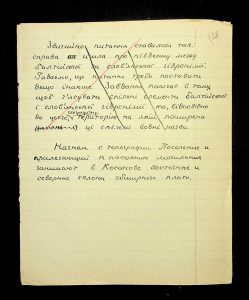 Звичайно, питання ставилось так:
справа йшла про південну межу
балтійської і слов'янської гідронімії
Гадаємо, що питання треба поставити
дещо інакше. Завдання полягає в тому,
щоб з'ясувати спільні елементи балтійської
і слов'янської гідронімії та, відповідно
до цього, територію на якій поширена
ці спільні назви.
Начнем с топографии. Поселение и
прилегающий к поселению могильник
занимают в Косанове восточные и
северные склоны обширного плато.